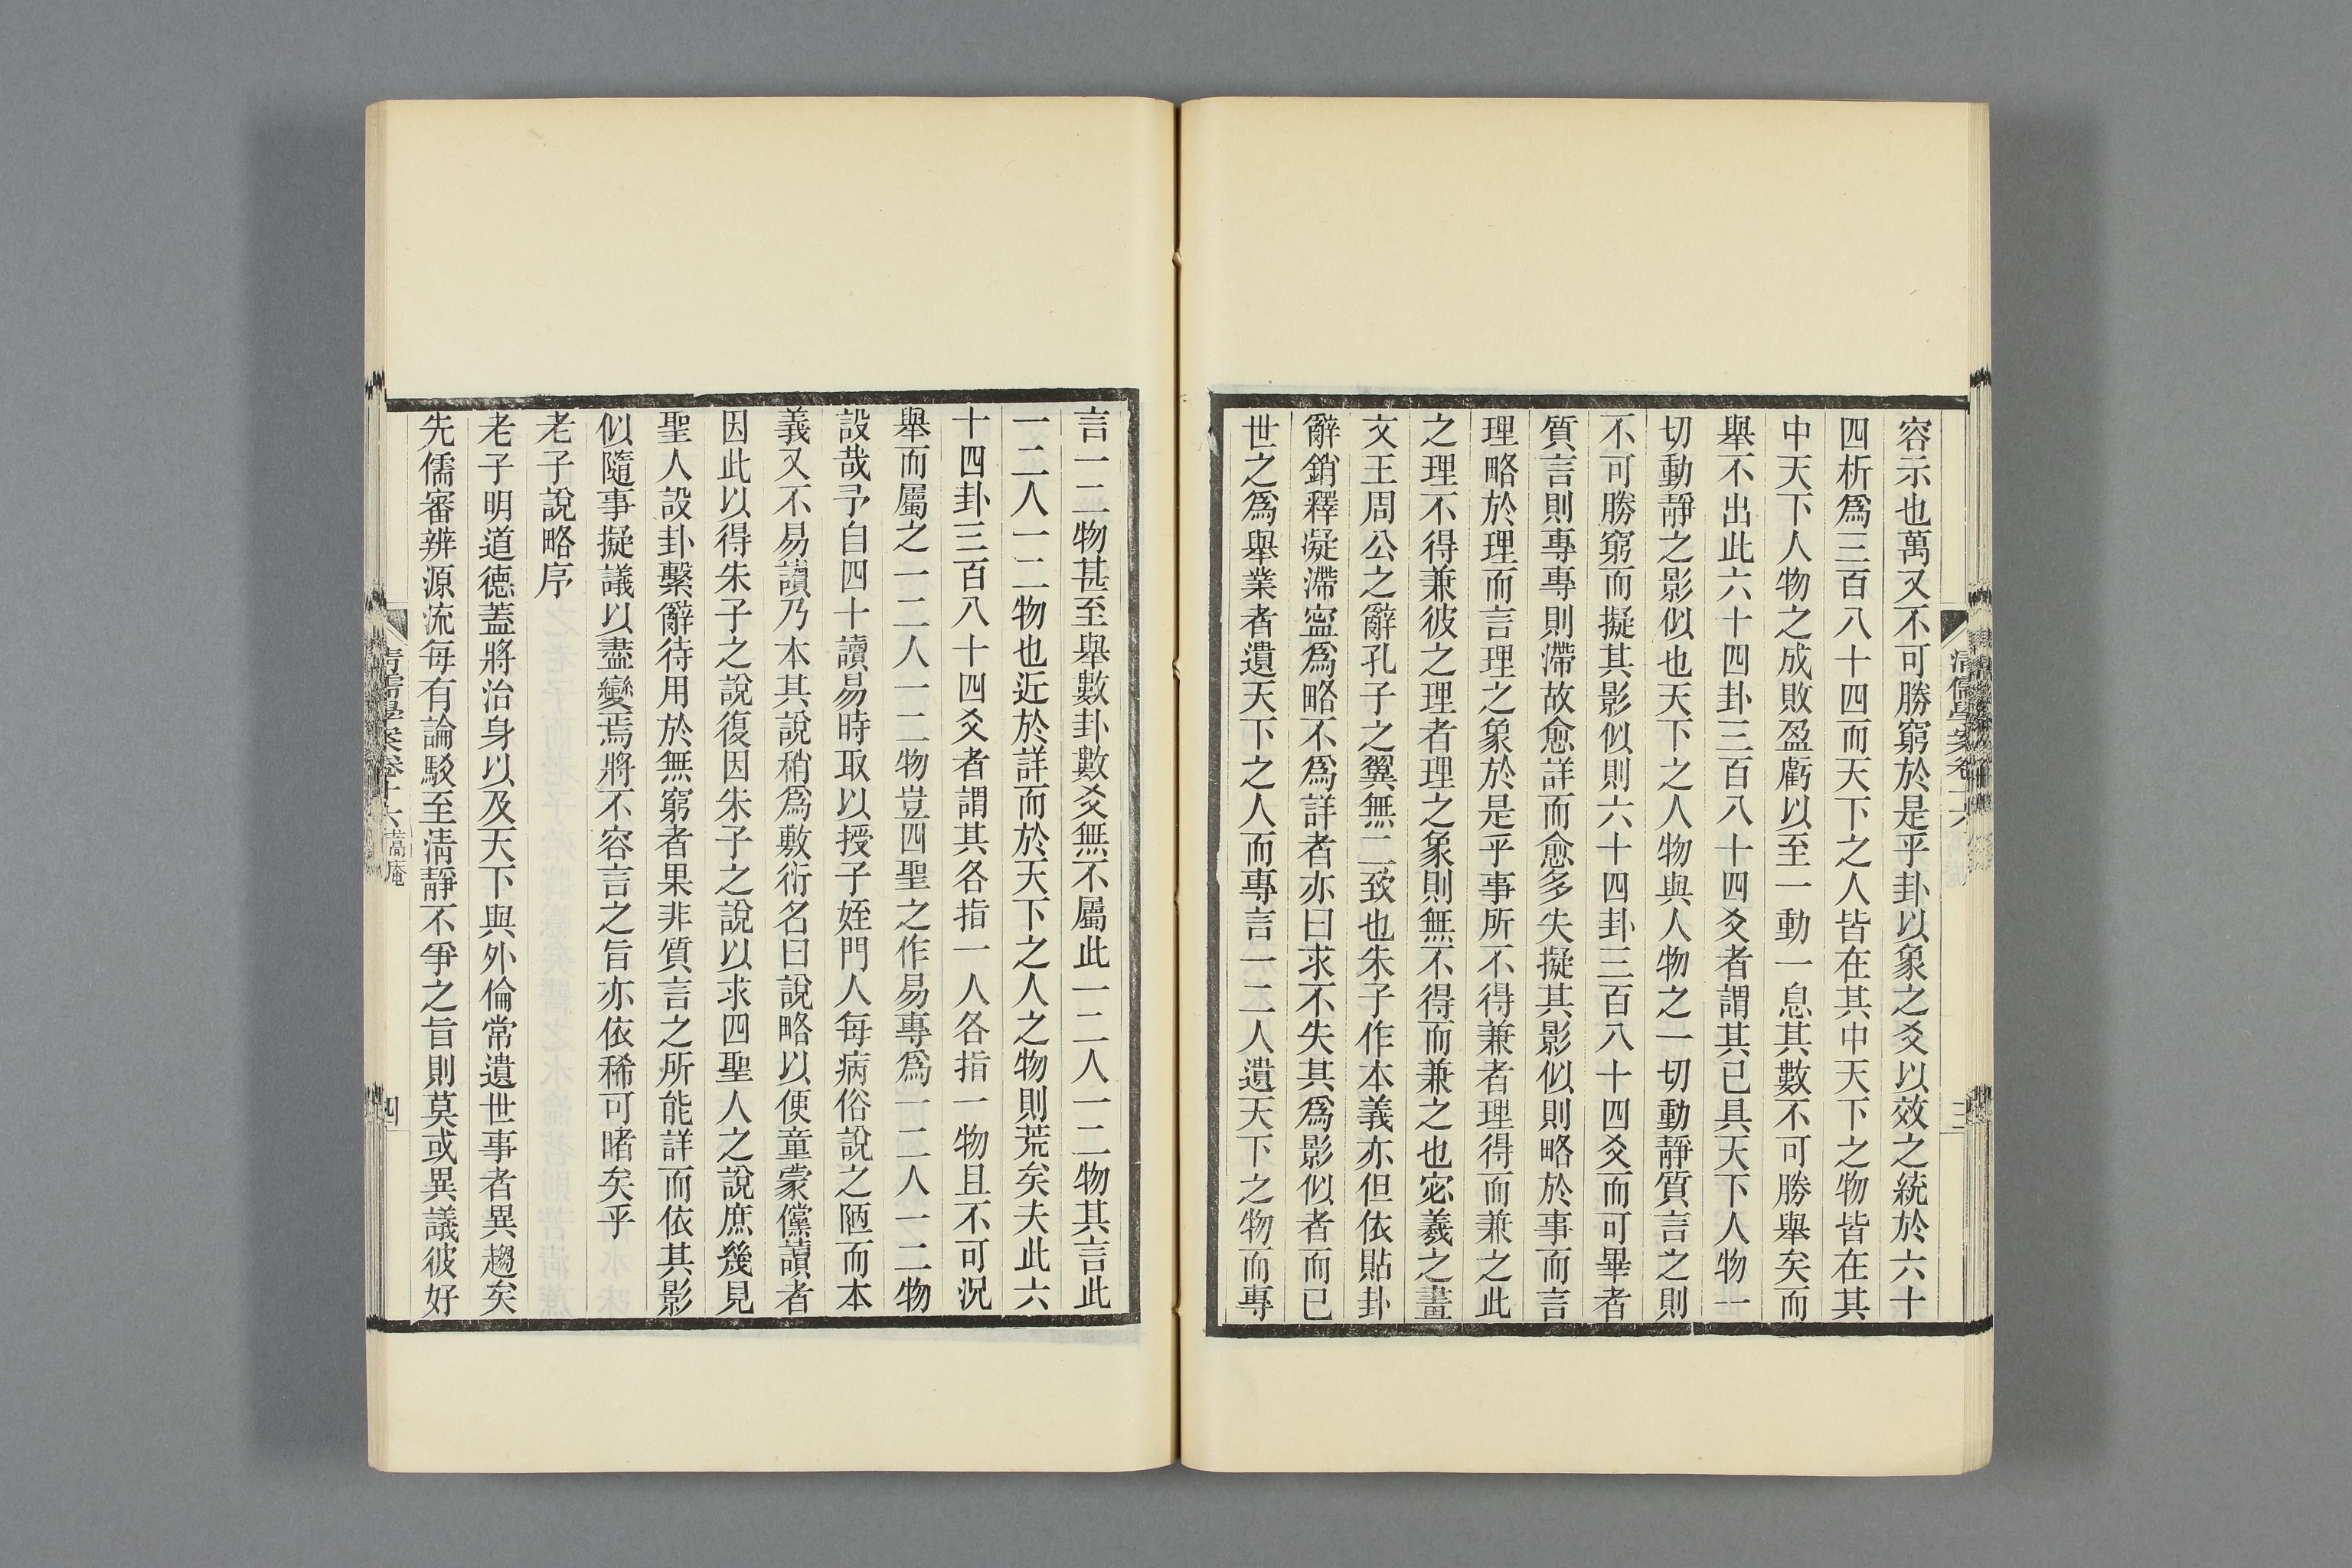 容示也萬又不可勝窮於是乎卦以象之爻以效之統於六十
四析爲三百八十四而天下之人皆在其中天下之物皆在其
中天下人物之成敗盈虧以至一動一息其數不可勝舉矣而
舉不出此六十四卦三百八十四爻者謂其已具天下人物一
切動靜之影似也天下之人物與人物之一切動靜質言之則
不可勝窮而擬其影似則六十四卦三百八十四爻而可畢者
質言則專專則滯故愈詳而愈多失擬其影似則略於事而言
理略於理而言理之象於是乎事所不得兼者理得而兼之此
之理不得兼彼之理者理之象則無不得而兼之也宓羲之畫
文王周公之辭孔子之翼無二致也朱子作本義亦但依貼卦
辭銷釋凝滯寍爲略不爲詳者亦曰求不失其爲影似者而已
世之爲舉業者遺天下之人而專言一二人遺天下之物而專
清儒學案卷十六
三
言一二物甚至舉數卦數爻無不屬此一二人一二物其言此
一二人一二物也近於詳而於天下之人之物則荒矣夫此六
十四卦三百八十四爻者謂其各指一人各指一物且不可況
舉而屬之一二人一二物豈四聖之作易專爲一二人一二物
設哉予自四十讀易時取以授子姪門人每病俗說之陋而本
義又不易讀乃本其說稍爲敷衍名曰說略以便童蒙儻讀者
因此以得朱子之說復因朱子之說以求四聖人之說庶幾見
聖人設卦繫辭待用於無窮者果非質言之所能詳而依其影
似隨事擬議以盡變焉將不容言之旨亦依稀可睹矣乎
老子說略序
老子明道德蓋將治身以及天下與外倫常遺世事者異趨矣
先儒審辨源流每有論駁至清靜不爭之旨則莫或異議彼好
清儒學案卷十六 蒿庵
四